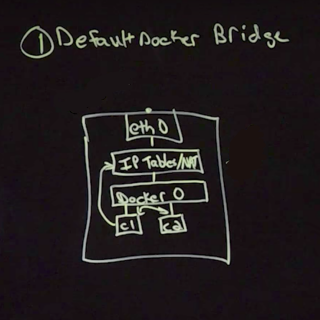 ① Default Docker Bridge
eth 0
IP Tables/NAT
Docker 0
c1 c2